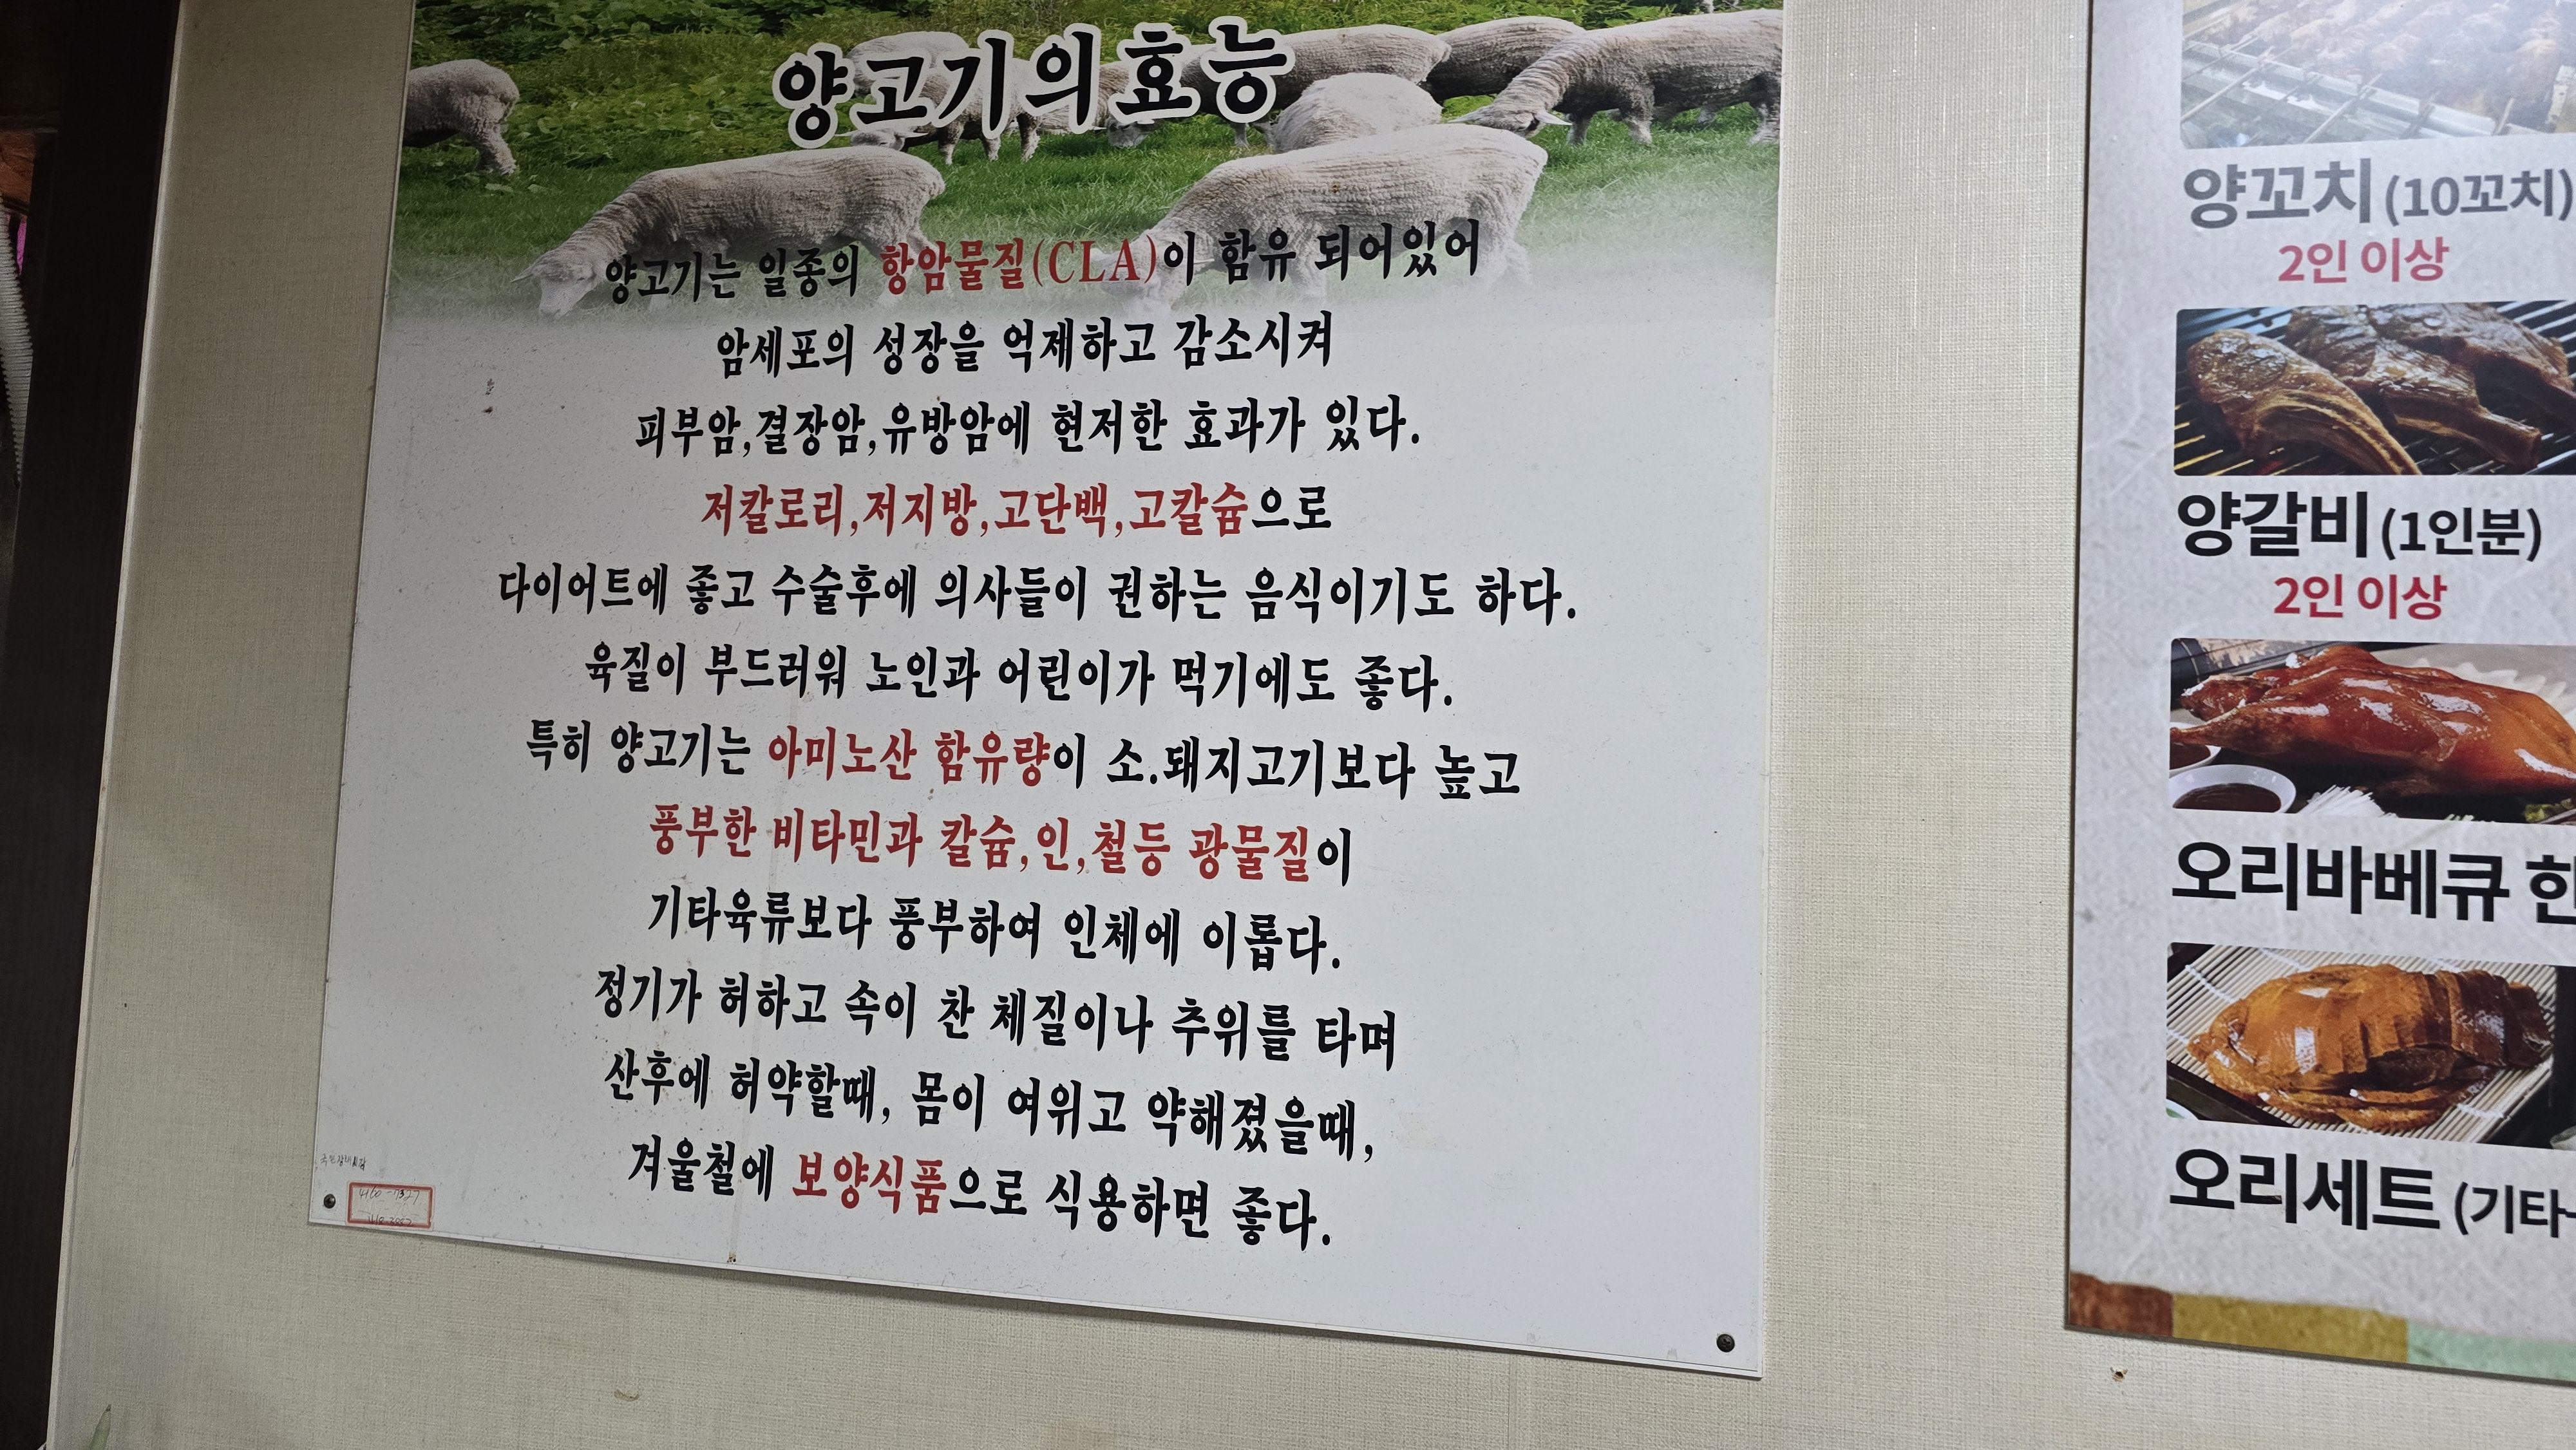 양고기의효능
양고기는 일종의 항암물질(CLA)이 함유 되어있어
암세포의 성장을 억제하고 감소시켜
피부암,결장암,유방암에 현저한 효과가 있다.
저칼로리,저지방,고단백,고칼슘으로
다이어트에 좋고 수술후에 의사들이 권하는 음식이기도 하다.
육질이 부드러워 노인과 어린이가 먹기에도 좋다.
특히 양고기는 아미노산 함유량이 소.돼지고기보다 높고
풍부한 비타민과 칼슘,인,철등 광물질이
기타육류보다 풍부하여 인체에 이롭다.
정기가 허하고 속이 찬 체질이나 추위를 타며
산후에 허약할때, 몸이 여위고 약해졌을때,
겨울철에 보양식품으로 식용하면 좋다.
양꼬치 (10꼬치)
2인 이상
양갈비 (1인분)
2인 이상
오리바베큐
오리세트 (기타